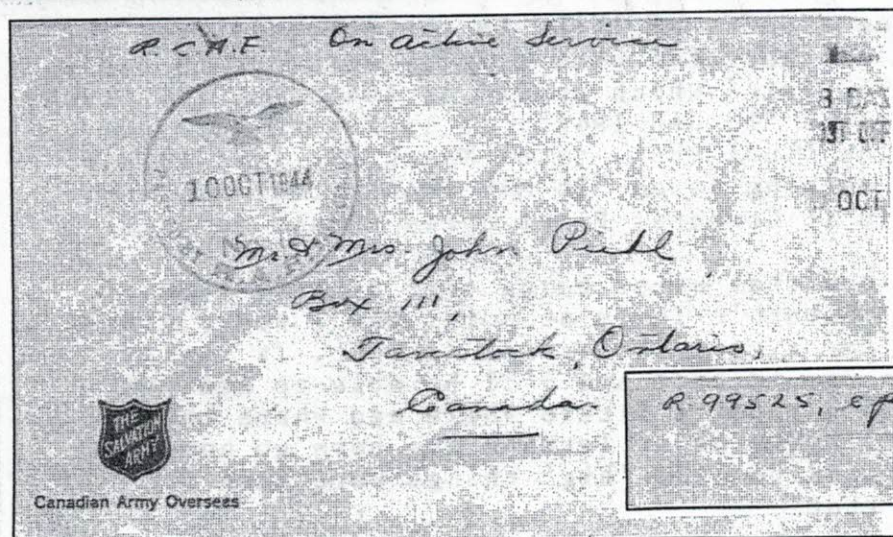 R.C.A.F. On Active Service
10 OCT 1944
OCT
Mr. & Mrs. John Piehl
Box 111,
Tavistock, Ontario,
Canada.
R 99525,
THE
SALVATION
ARMY
Canadian Army Oversees